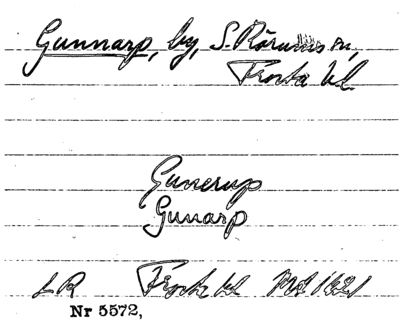 Gunnarp, by, S. Rörums sn,
Frosta hd.
Gunerup
Gunarp
LR Frosta hd 1821
Nr 5572,